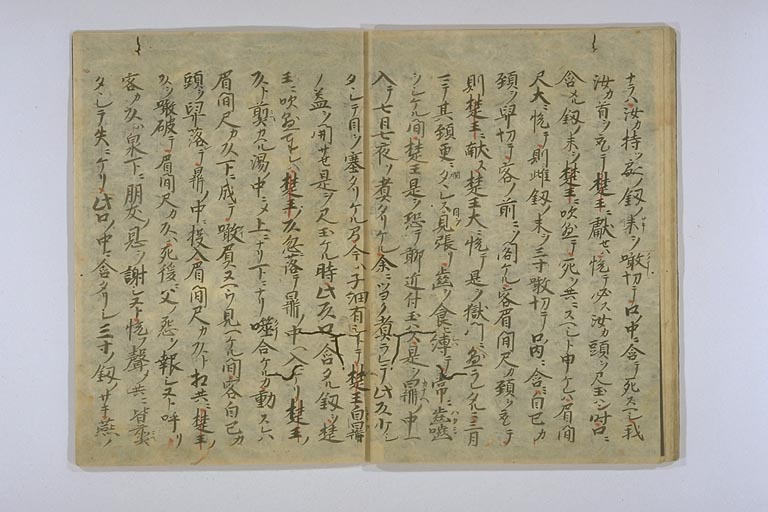 ナラハ汝カ持ツ処ノ釼ノ末ヲ噉切テ口中ニ含テ死スヘシ我
汝カ首ヲ取テ楚王ニ献セハ悦テ必ス汝カ頭ヲ見玉ハン時口ニ
含メル釼ノ末ヲ楚王ニ吹懸テ死ヲ共ニスヘシト申ケレハ眉間
尺大ニ悦テ則雌釼ノ末ヲ三寸噉切テ口内ニ含ミ自己カ
頚ヲ掻切テ客ノ前ニソ閣ケル客眉間尺カ頚ヲ取テ
則楚王ニ献ル楚王大ニ悦テ是ヲ獄門ニ懸ラレタルニ三月
マテ其頚更ニタヽレス見張リ歯ヲ食縛テ常ニ歯噛
ヲシケル間楚王是ヲ恐テ聊近付玉ハス是ヲ鼎ノ中ニ
入テ七日七夜ソ煮タリケル余ニツヨク煮ラレテ此頭少シ
タヽレテ目ヲ塞タリケルヲ今ハ子細有シトテ楚王自鼎
ノ蓋ヲ開セ是ヲ見玉ケル時此頭口ニ含タル釼ヲ楚
王ニ吹懸奉ル楚王ノ頭忽落テ鼎ノ中ヘ入ニケリ楚王ノ
頭ト煎カヘル湯ノ中ニメ上ニナリ下ニナリ噛合ケルカ動スレハ
眉間尺カ頭下ニ成テ噉負ヌヘウ見ヘケル間客自己カ
頭ヲ掻落テ鼎ノ中ニ投入眉間尺カ頭ト相共ニ楚王ノ
頭ヲ噉破テ眉間尺カ頭ハ死後父ノ怨ヲ報シヌト呼リ
客カ頭ハ泉下ニ朋友ノ恩ヲ謝シヌト悦フ聲シ共ニ皆煮
タヽレテ失ニケリ此口ノ中ニ含タリシ三寸ノ釼ノサキ燕ノ